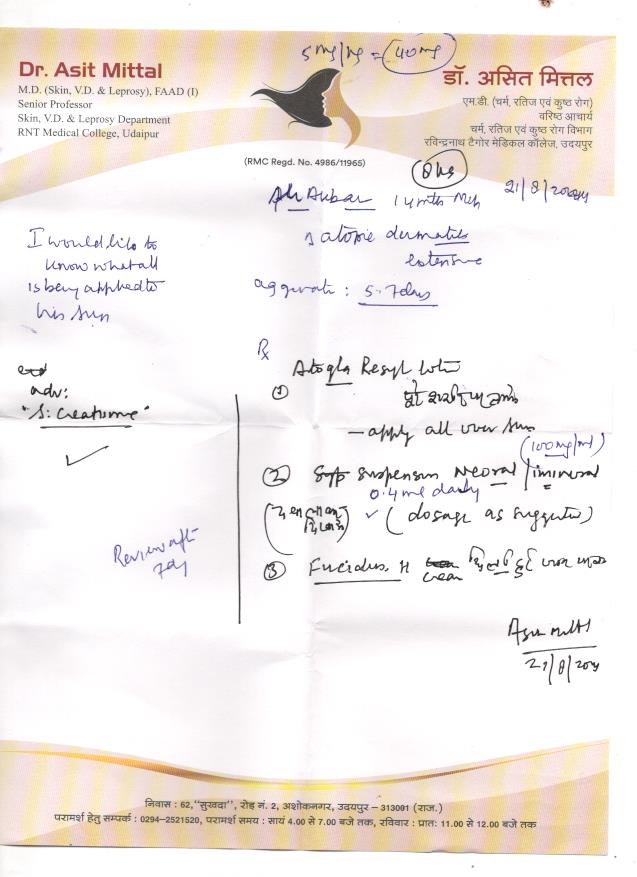 5 mg/kg = 40mg
Dr. Asit Mittal
M.D. (Skin, V.D. & Leprosy), FAAD (I)
Senior Professor
Skin, V.D. & Leprosy Department
RNT Medical College, Udaipur
डॉ. असित मित्तल
एम.डी. (चर्म, रतिज एवं कुष्ठ रोग)
वरिष्ठ आचार्य
चर्म, रतिज एवं कुष्ठ रोग विभाग
रविन्द्रनाथ टैगोर मेडिकल कॉलेज, उदयपुर
(RMC Regd. No. 4986/11965)
8kg
14mth
21/8/
atopic dermatitis
extensive
5-7days
I would like to
know what all
is being applied to
his skin
Rx
adv:
"S. Creatinine"
Review aft
7dy
① Atogla Resyl
– apply all over skin
(100mg/ml)
② suspension Neoral /
0.4 ml daily
(dosage as suggested)
③ Fucidin H cream
21/8/
निवास : 62,"सुखदा", रोड़ नं. 2, अशोकनगर, उदयपुर – 313001 (राज.)
परामर्श हेतु सम्पर्क : 0294–2521520, परामर्श समय : सायं 4.00 से 7.00 बजे तक, रविवार : प्रातः 11.00 से 12.00 बजे तक